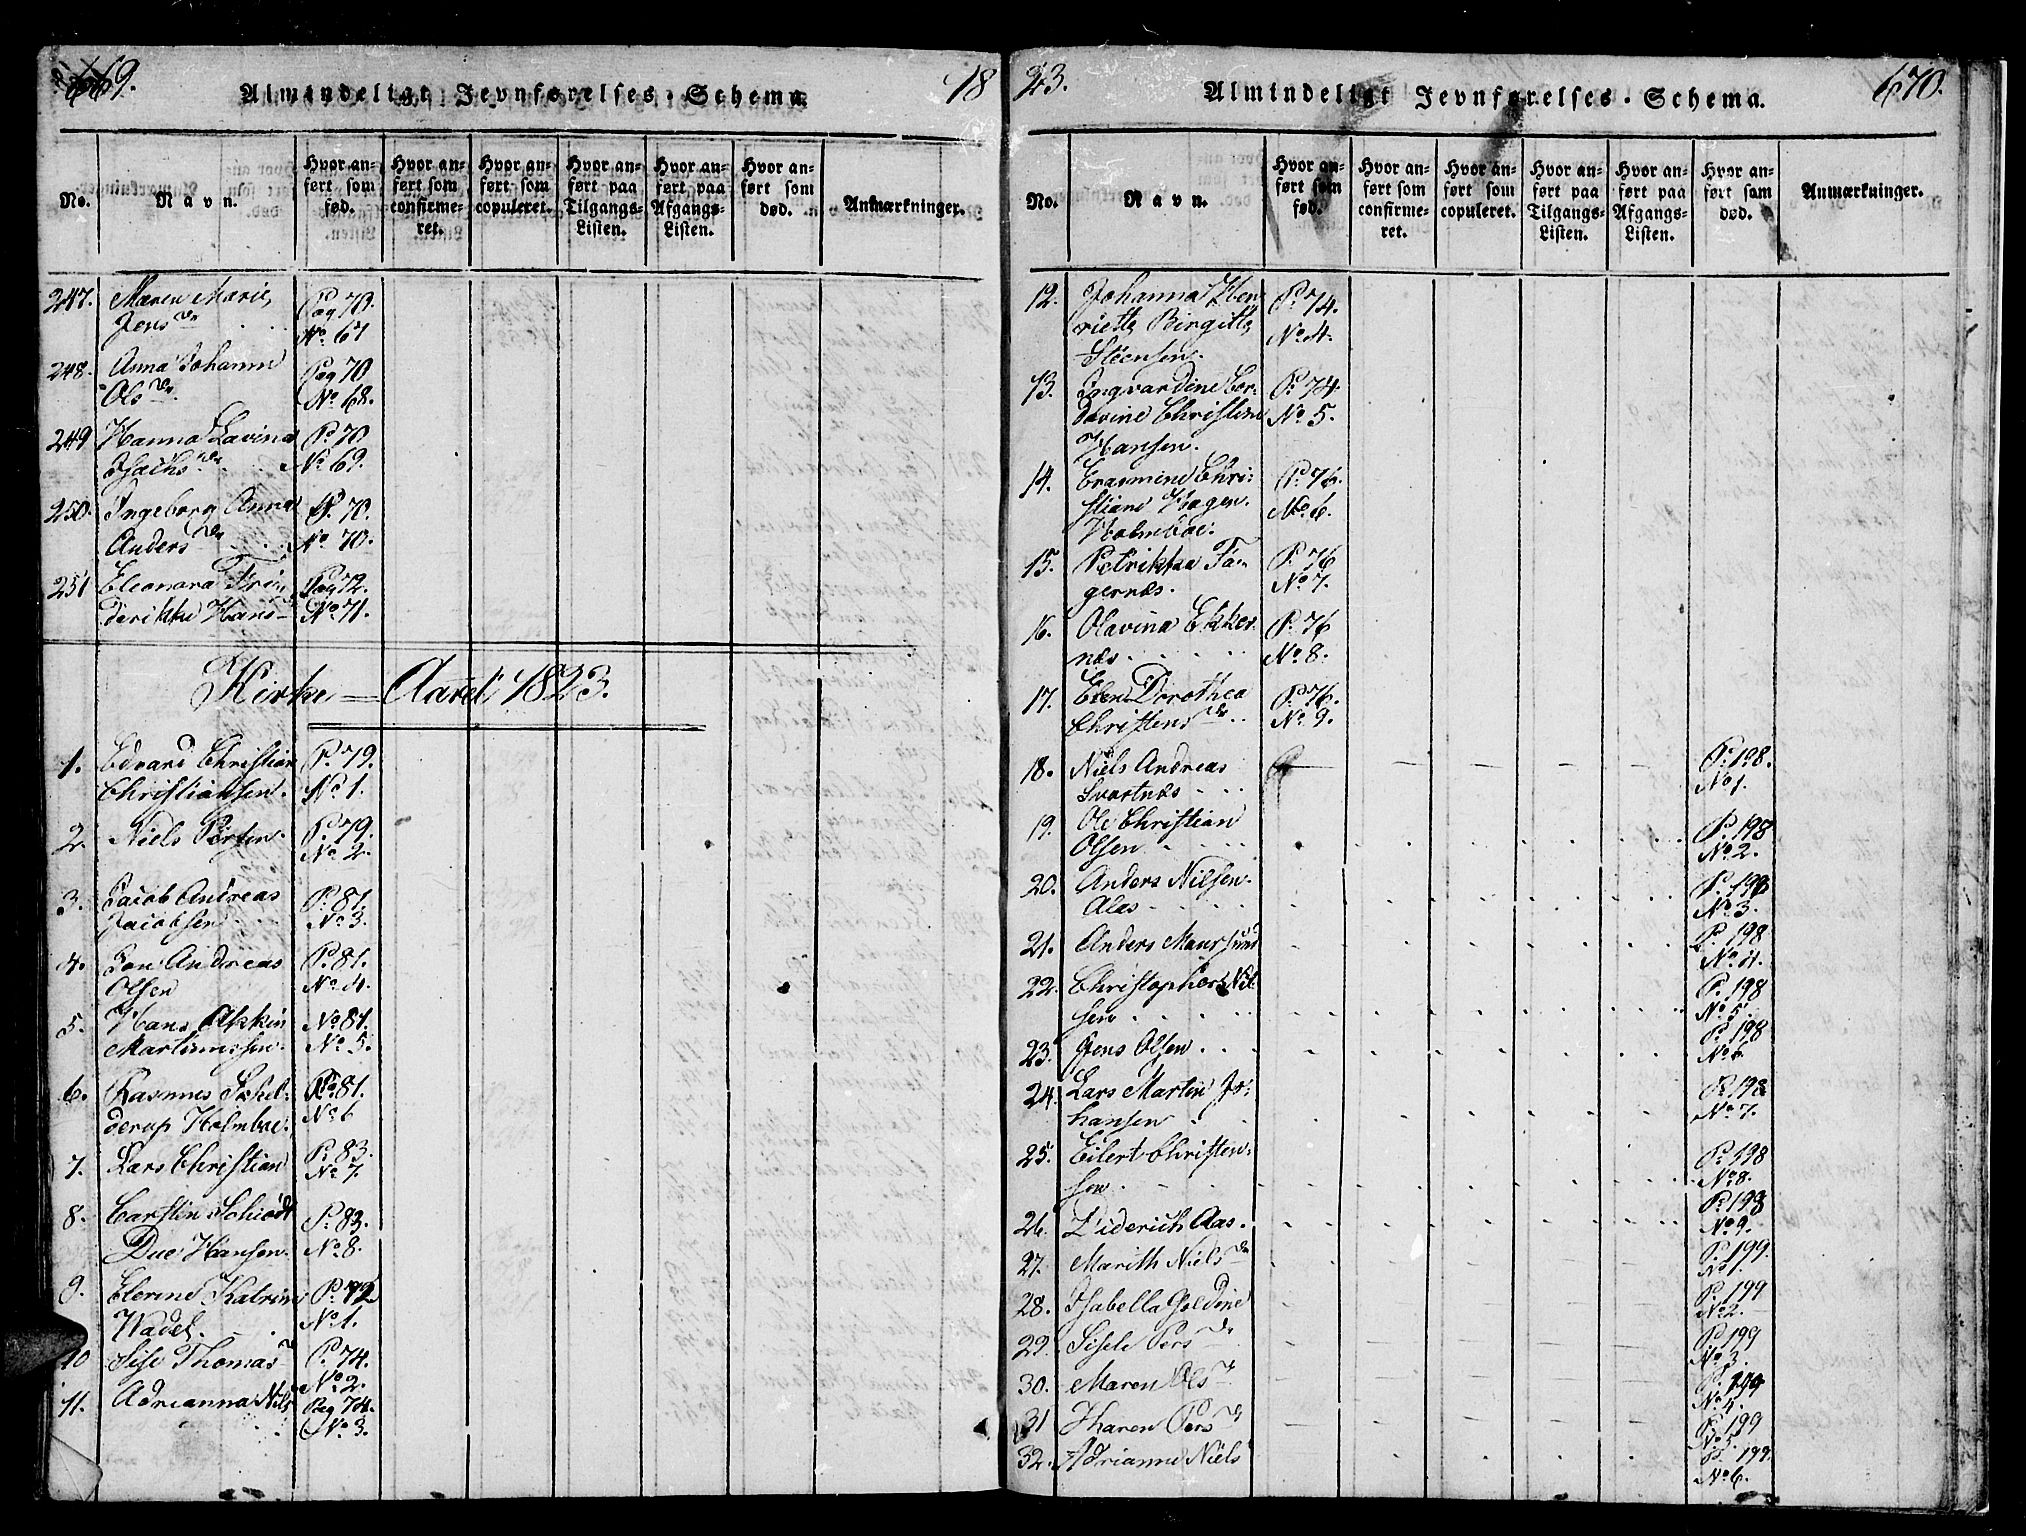 669.
Almindeligt Jevnførelses-Schema
18
No.
Navn.
Hvor an-
ført som
fød.
Hvor an-
ført som
confirme-
ret.
Hvor an-
ført som
copuleret.
Hvor an-
ført paa
Tilgangs-
Listen.
Hvor an-
ført paa
Afgangs-
Listen.
Hvor an-
ført som
død.
Anmærkninger.
247. Maren Marie Pag 70.
Jens dr No. 67
248. Anna Johanna Pag 70
Ols dr No. 68.
249 Hanna Lavina P. 70
Isachs dr No 69.
250. Ingeborg Anna P. 70.
Anders dr No. 70.
251 Eleonora Frie Pag 72.
derikke Hans No. 71.
Kirke-Aaret 1823.
1. Edvard Christian P. 79.
Christiansen. No. 1.
2. Niels Persen. P. 79.
No. 2.
3. Jacob Andreas P. 81.
Jacobsen No. 3.
4. Jon Andreas P. 81.
Olsen No. 4.
5. Hans No. 81.
Martinussen. No. 5.
6. Rasmus Schel- P. 81.
derup Holmboe. No. 6
7. Lars Christian P. 83.
No. 7.
8. Carsten Schiødt P. 83.
Due Hansen. No. 8.
9. Elerine Katrine P. 72
Wadel. No. 1.
10 Sise Thomas dr P. 74.
No. 2.
11. Adrianna Nils Pag 74.
No. 3.
23.
Almindeligt Jevnførelses-Schema.
670.
No.
Navn.
Hvor an-
ført som
fød.
Hvor an-
ført som
confirme-
ret.
Hvor an-
ført som
copuleret.
Hvor an-
ført paa
Tilgangs-
Listen.
Hvor an-
ført paa
Afgangs-
Listen.
Hvor an-
ført som
død.
Anmærkninger.
12. Johanna Hen P. 74.
riette Birgitte No. 4.
Steensen.
13. Ingvardine Cor- P. 74.
Christine No. 5.
Hansen.
14. Erasmine Chri- P. 76.
stiane Hagen No. 6.
Holmboe.
15. Petrikka Fa- P. 76
gernæs. No. 7.
16. Olavina Ekker P. 76
næs No. 8.
17. Elen Dorothea P. 76.
Christens dr No. 9.
18. Niels Andreas P. 198.
Svartnæs No 1.
19. Ole Christian P. 198
Olsen No. 2.
20. Anders Nilsen P. 198
Alas No. 3.
21. Anders Maursund P. 198
No. 4.
22. Christopher Nil P. 198
sen No. 5.
23. Jens Olsen P. 198
No. 6.
24. Lars Martin Jo- P. 198
hansen No. 7.
25. Eilert Christen- P. 198
sen No. 8.
26. Diderich Aas. P. 198
No. 9.
27. Marith Niels dr P. 199.
No. 1.
28. Isabella Goldine P. 199
No. 2.
29. Sisele Pers dr P. 199
No. 3.
30. Maren Ols dr P. 199
No. 4.
31 Karen Pers dr P. 199
No. 5.
32. Adrianne Niels P. 199.
No. 6.